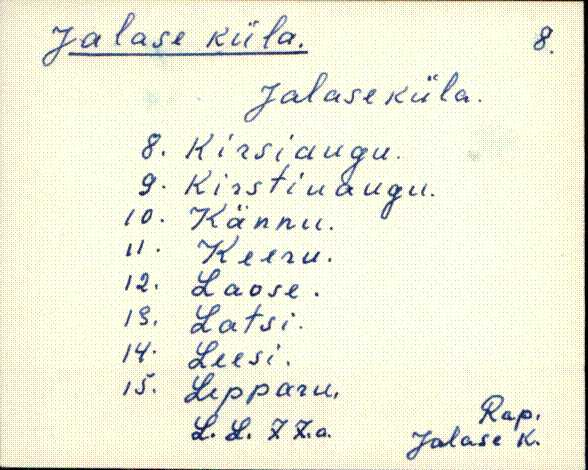 Jalase küla. 8.
Jalaseküla.
8. Kirsiaugu.
9. Kirstinaugu.
10. Kännu.
11. Keeru.
12. Laose.
13. Latsi.
14. Leesi.
15. Lepparu.
L. L. 77.a. Rap.
Jalase K.